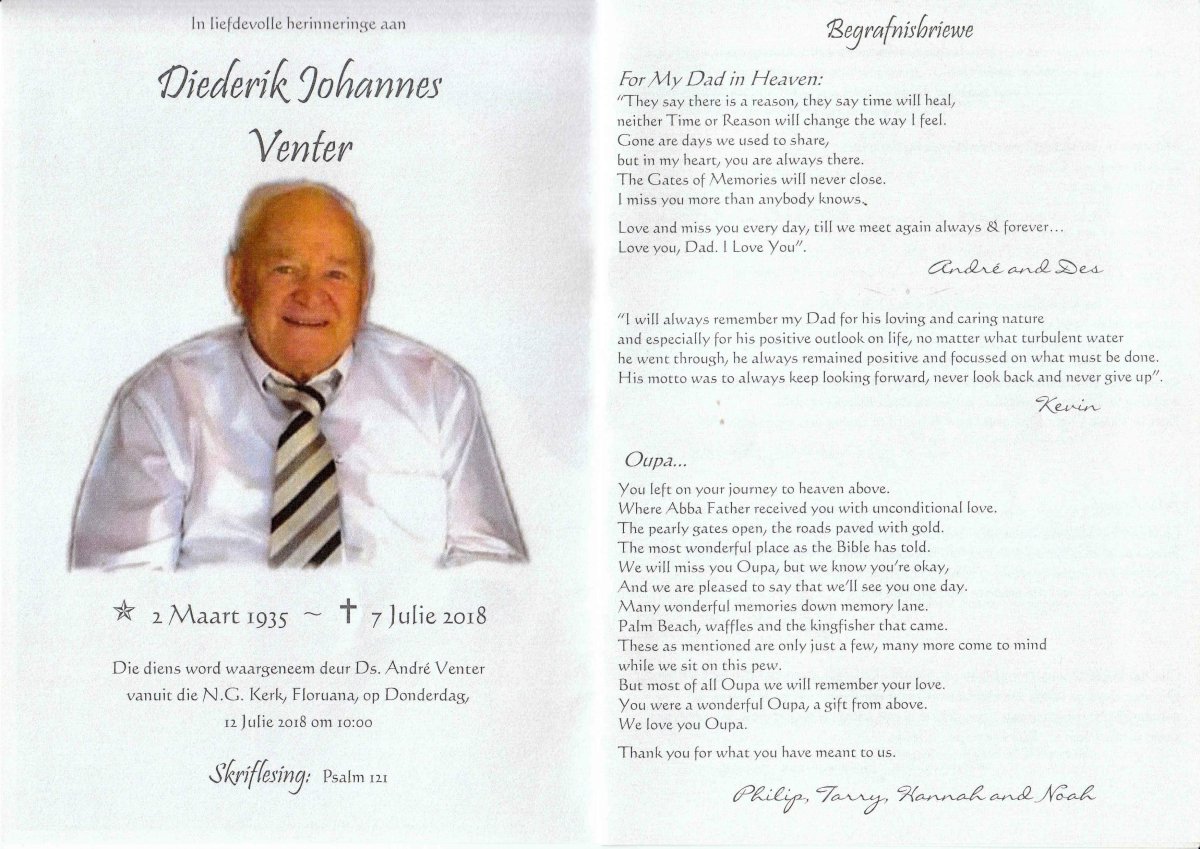 In liefdevolle herinneringe aan
Diederik Johannes
Venter
2 Maart 1935 ~ 7 Julie 2018
Die diens word waargeneem deur Ds. André Venter
vanuit die N.G. Kerk, Floruana, op Donderdag,
12 Julie 2018 om 10:00
Skriflesing: Psalm 121
Begrafnisbriewe
For My Dad in Heaven:
"They say there is a reason, they say time will heal,
neither Time or Reason will change the way I feel.
Gone are days we used to share,
but in my heart, you are always there.
The Gates of Memories will never close.
I miss you more than anybody knows.
Love and miss you every day, till we meet again always & forever...
Love you, Dad. I Love You".
André and Des
"I will always remember my Dad for his loving and caring nature
and especially for his positive outlook on life, no matter what turbulent water
he went through, he always remained positive and focussed on what must be done.
His motto was to always keep looking forward, never look back and never give up".
Kevin
Oupa...
You left on your journey to heaven above.
Where Abba Father received you with unconditional love.
The pearly gates open, the roads paved with gold.
The most wonderful place as the Bible has told.
We will miss you Oupa, but we know you're okay,
And we are pleased to say that we'll see you one day.
Many wonderful memories down memory lane.
Palm Beach, waffles and the kingfisher that came.
These as mentioned are only just a few, many more come to mind
while we sit on this pew.
But most of all Oupa we will remember your love.
You were a wonderful Oupa, a gift from above.
We love you Oupa.
Thank you for what you have meant to us.
Philip, Tarry, Hannah and Noah